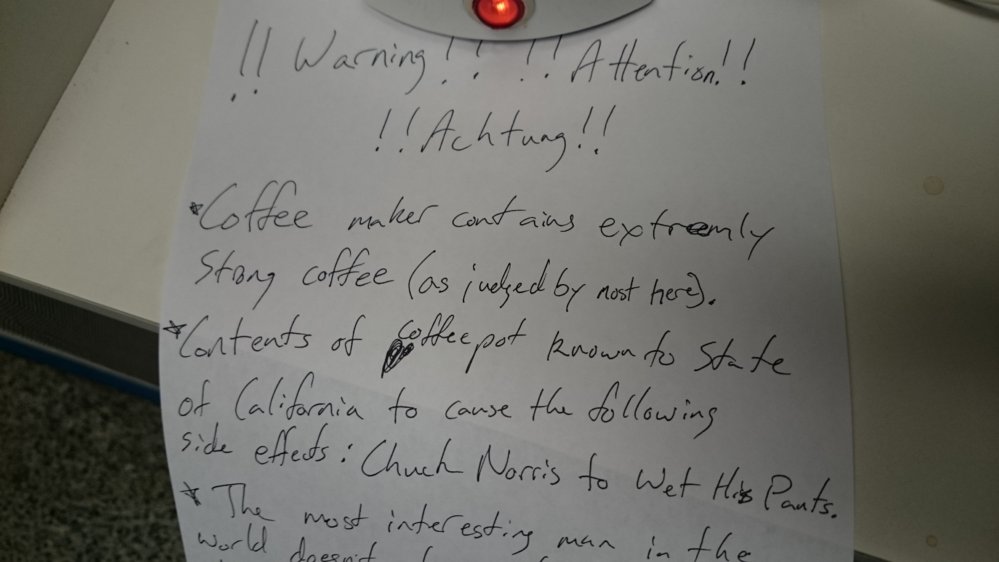 !! Warning!! !! Attention!!
!! Achtung!!
*Coffee maker contains extremly
strong coffee (as judged by most here).
*Contents of coffee pot known to State
of California to cause the following
side effects: Chuck Norris to Wet His Pants.
*The most interesting man in the
world doesn't